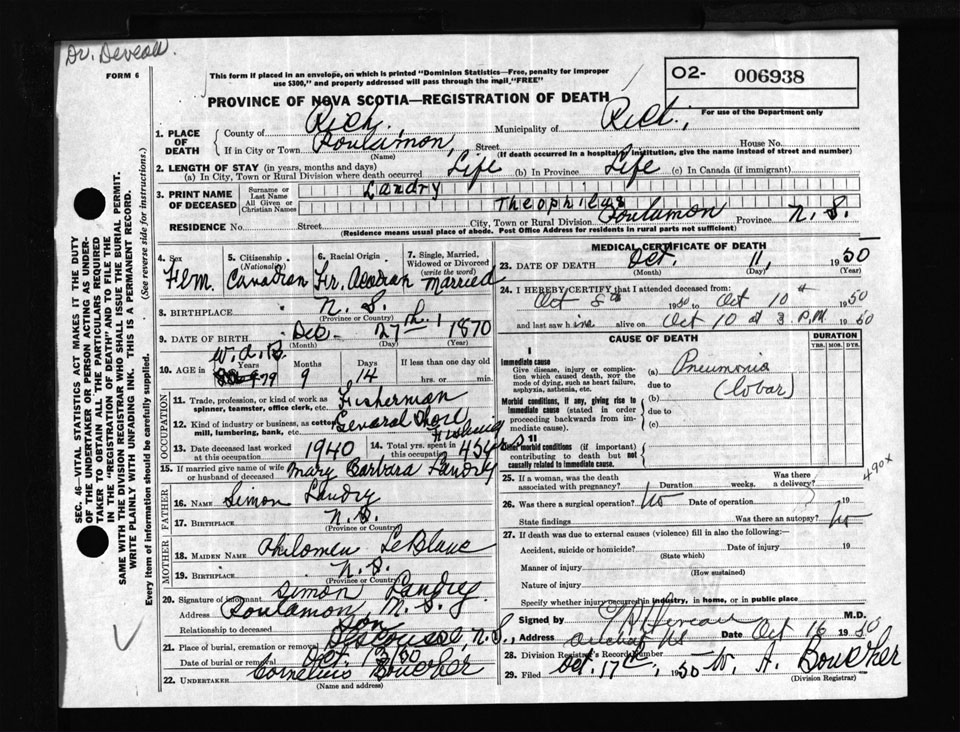 Dr. Deveau.
FORM 6
This form if placed in an envelope, on which is printed "Dominion Statistics—Free, penalty for improper
use $300," and properly addressed will pass through the mail, "FREE"
O2- 006938
PROVINCE OF NOVA SCOTIA—REGISTRATION OF DEATH
For use of the Department only
1. PLACE OF DEATH
County of Rich. Municipality of Rich.,
If in City or Town Poulamon, Street House No.
(Name) (If death occurred in a hospital or institution, give the name instead of street and number)
2. LENGTH OF STAY (in years, months and days)
(a) In City, Town or Rural Division where death occurred Life (b) In Province Life (c) In Canada (if immigrant)
3. PRINT NAME OF DECEASED
Surname or Last Name Landry
All Given or Christian Names Theophilus
RESIDENCE No. Street City, Town or Rural Division Poulamon Province N. S.
(Residence means usual place of abode. Post Office Address for residents in rural parts not sufficient)
4. Sex
5. Citizenship (Nationality) Canadian
6. Racial Origin Fr. Acadian
7. Single, Married, Widowed or Divorced (write the word) Married
8. BIRTHPLACE N. S.
(Province or Country)
9. DATE OF BIRTH Dec. 27th. 1870
(Month) (Day) (Year)
10. AGE in Years 79 Months 9 Days 14 If less than one day
hrs. or min.
OCCUPATION
11. Trade, profession, or kind of work as
spinner, teamster, office clerk, etc. Fisherman
12. Kind of industry or business, as cotton
mill, lumbering, bank, etc. General Shore Fishing
13. Date deceased last worked
at this occupation 1940
14. Total yrs. spent in
this occupation 45 yrs
15. If married give name of wife
or husband of deceased Mary Barbara Landry
FATHER
16. NAME Simon Landry
17. BIRTHPLACE N. S.
(Province or Country)
MOTHER
18. MAIDEN NAME Philomen LeBlanc
19. BIRTHPLACE N. S.
(Province or Country)
20. Signature of informant Simon Landry
Address Poulamon, N. S.
Relationship to deceased Son
21. Place of burial, cremation or removal Descousse, N. S.,
Date of burial or removal Oct. 13/50
22. UNDERTAKER Cornelius Boucher
(Name and address)
MEDICAL CERTIFICATE OF DEATH
23. DATE OF DEATH Oct. 11, 1950
(Month) (Day) (Year)
24. I HEREBY CERTIFY that I attended deceased from:
Oct 8th 1950 to Oct 10th 1950
and last saw him alive on Oct 10 at 3 P.M. 1950
CAUSE OF DEATH
DURATION
YRS. MOS. DYS.
I
Immediate cause
Give disease, injury or complication
which caused death, not the
mode of dying, such as heart failure,
asphyxia, asthenia, etc.
(a) Pneumonia
due to
Morbid conditions, if any, giving rise to
immediate cause (stated in order
proceeding backwards from immediate
cause)
(b) (lobar)
due to
(c)
II
Other morbid conditions (if important)
contributing to death but not
causally related to immediate cause.
490x
25. If a woman, was the death
associated with pregnancy? Duration weeks. Was there
a delivery?
26. Was there a surgical operation? No Date of operation 19
State findings Was there an autopsy? No
27. If death was due to external causes (violence) fill in also the following:—
Accident, suicide or homicide? Date of injury 19
(State which)
Manner of injury
(How sustained)
Nature of injury
Specify whether injury occurred in industry, in home, or in public place
Signed by Deveau M.D.
Address Arichat NS Date Oct 16 1950
28. Division Registrar's Record Number
29. Filed Oct. 17th, 1950 A. Boucher
(Division Registrar)
SEC. 46—VITAL STATISTICS ACT MAKES IT THE DUTY
OF THE UNDERTAKER OR PERSON ACTING AS UNDERTAKER
TO OBTAIN ALL THE PARTICULARS REQUIRED
IN THE "REGISTRATION OF DEATH" AND TO FILE THE
SAME WITH THE DIVISION REGISTRAR WHO SHALL ISSUE THE BURIAL PERMIT.
WRITE PLAINLY WITH UNFADING INK. THIS IS A PERMANENT RECORD.
Every item of information should be carefully supplied. (See reverse side for instructions.)